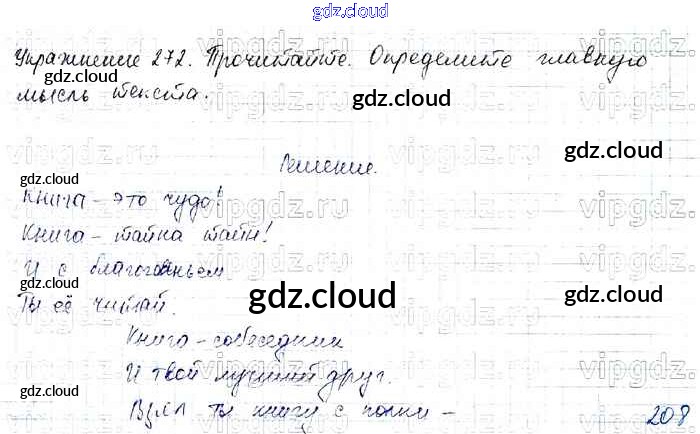 gdz.cloud
Упражнение 272. Прочитайте. Определите главную
мысль текста.
gdz.cloud
gdz.cloud
Решение.
gdz.cloud
gdz.cloud
Книга - это чудо!
Книга - тайна тайн!
И с благоговеньем
gdz.cloud
Ты её читай.
gdz.cloud
Книга - собеседник
И твой лучший друг.
gdz.cloud
gdz.cloud
Взял ты книгу с полки -
208
vipgdz.ru